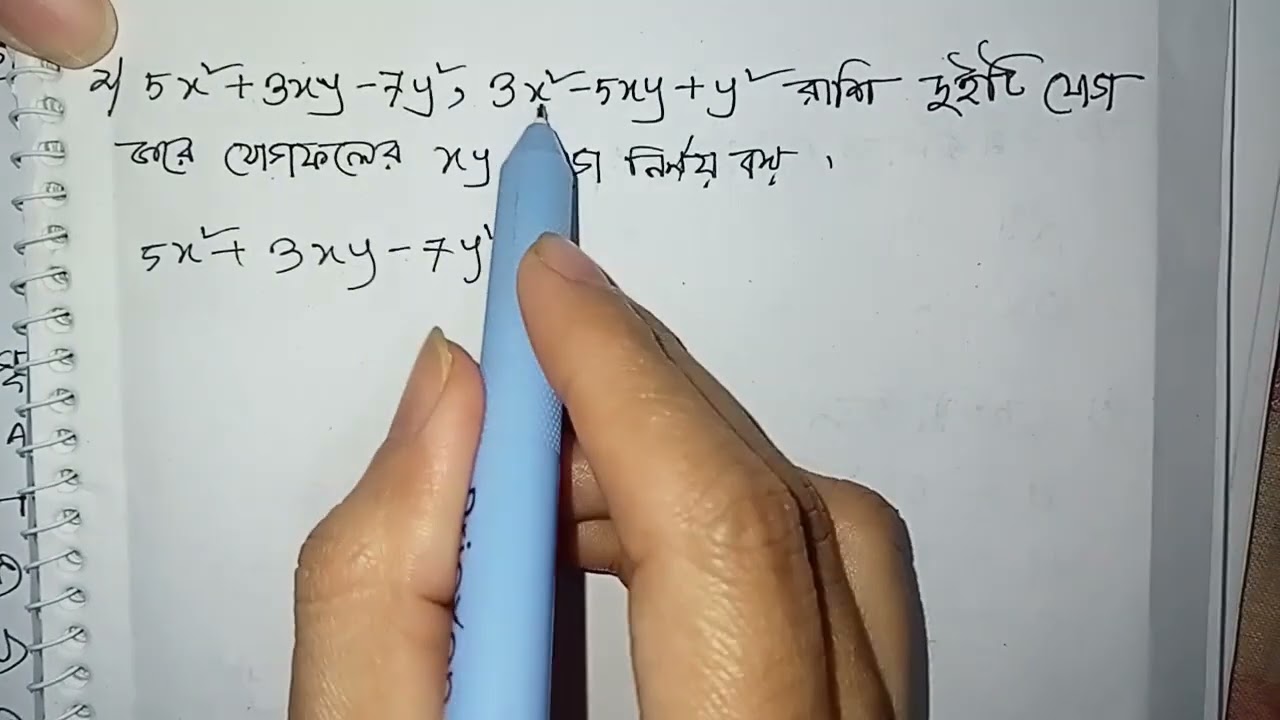 ২) 5x² + 3xy - 7y², 3x² - 5xy + y² রাশি দুইটি যোগ
করে যোগফলের xy নির্ণয় কর ।
5x² + 3xy - 7y²